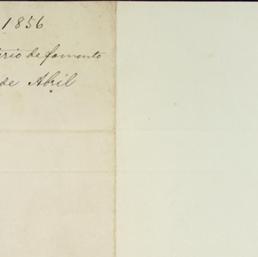 1856
de fomento
de Abril